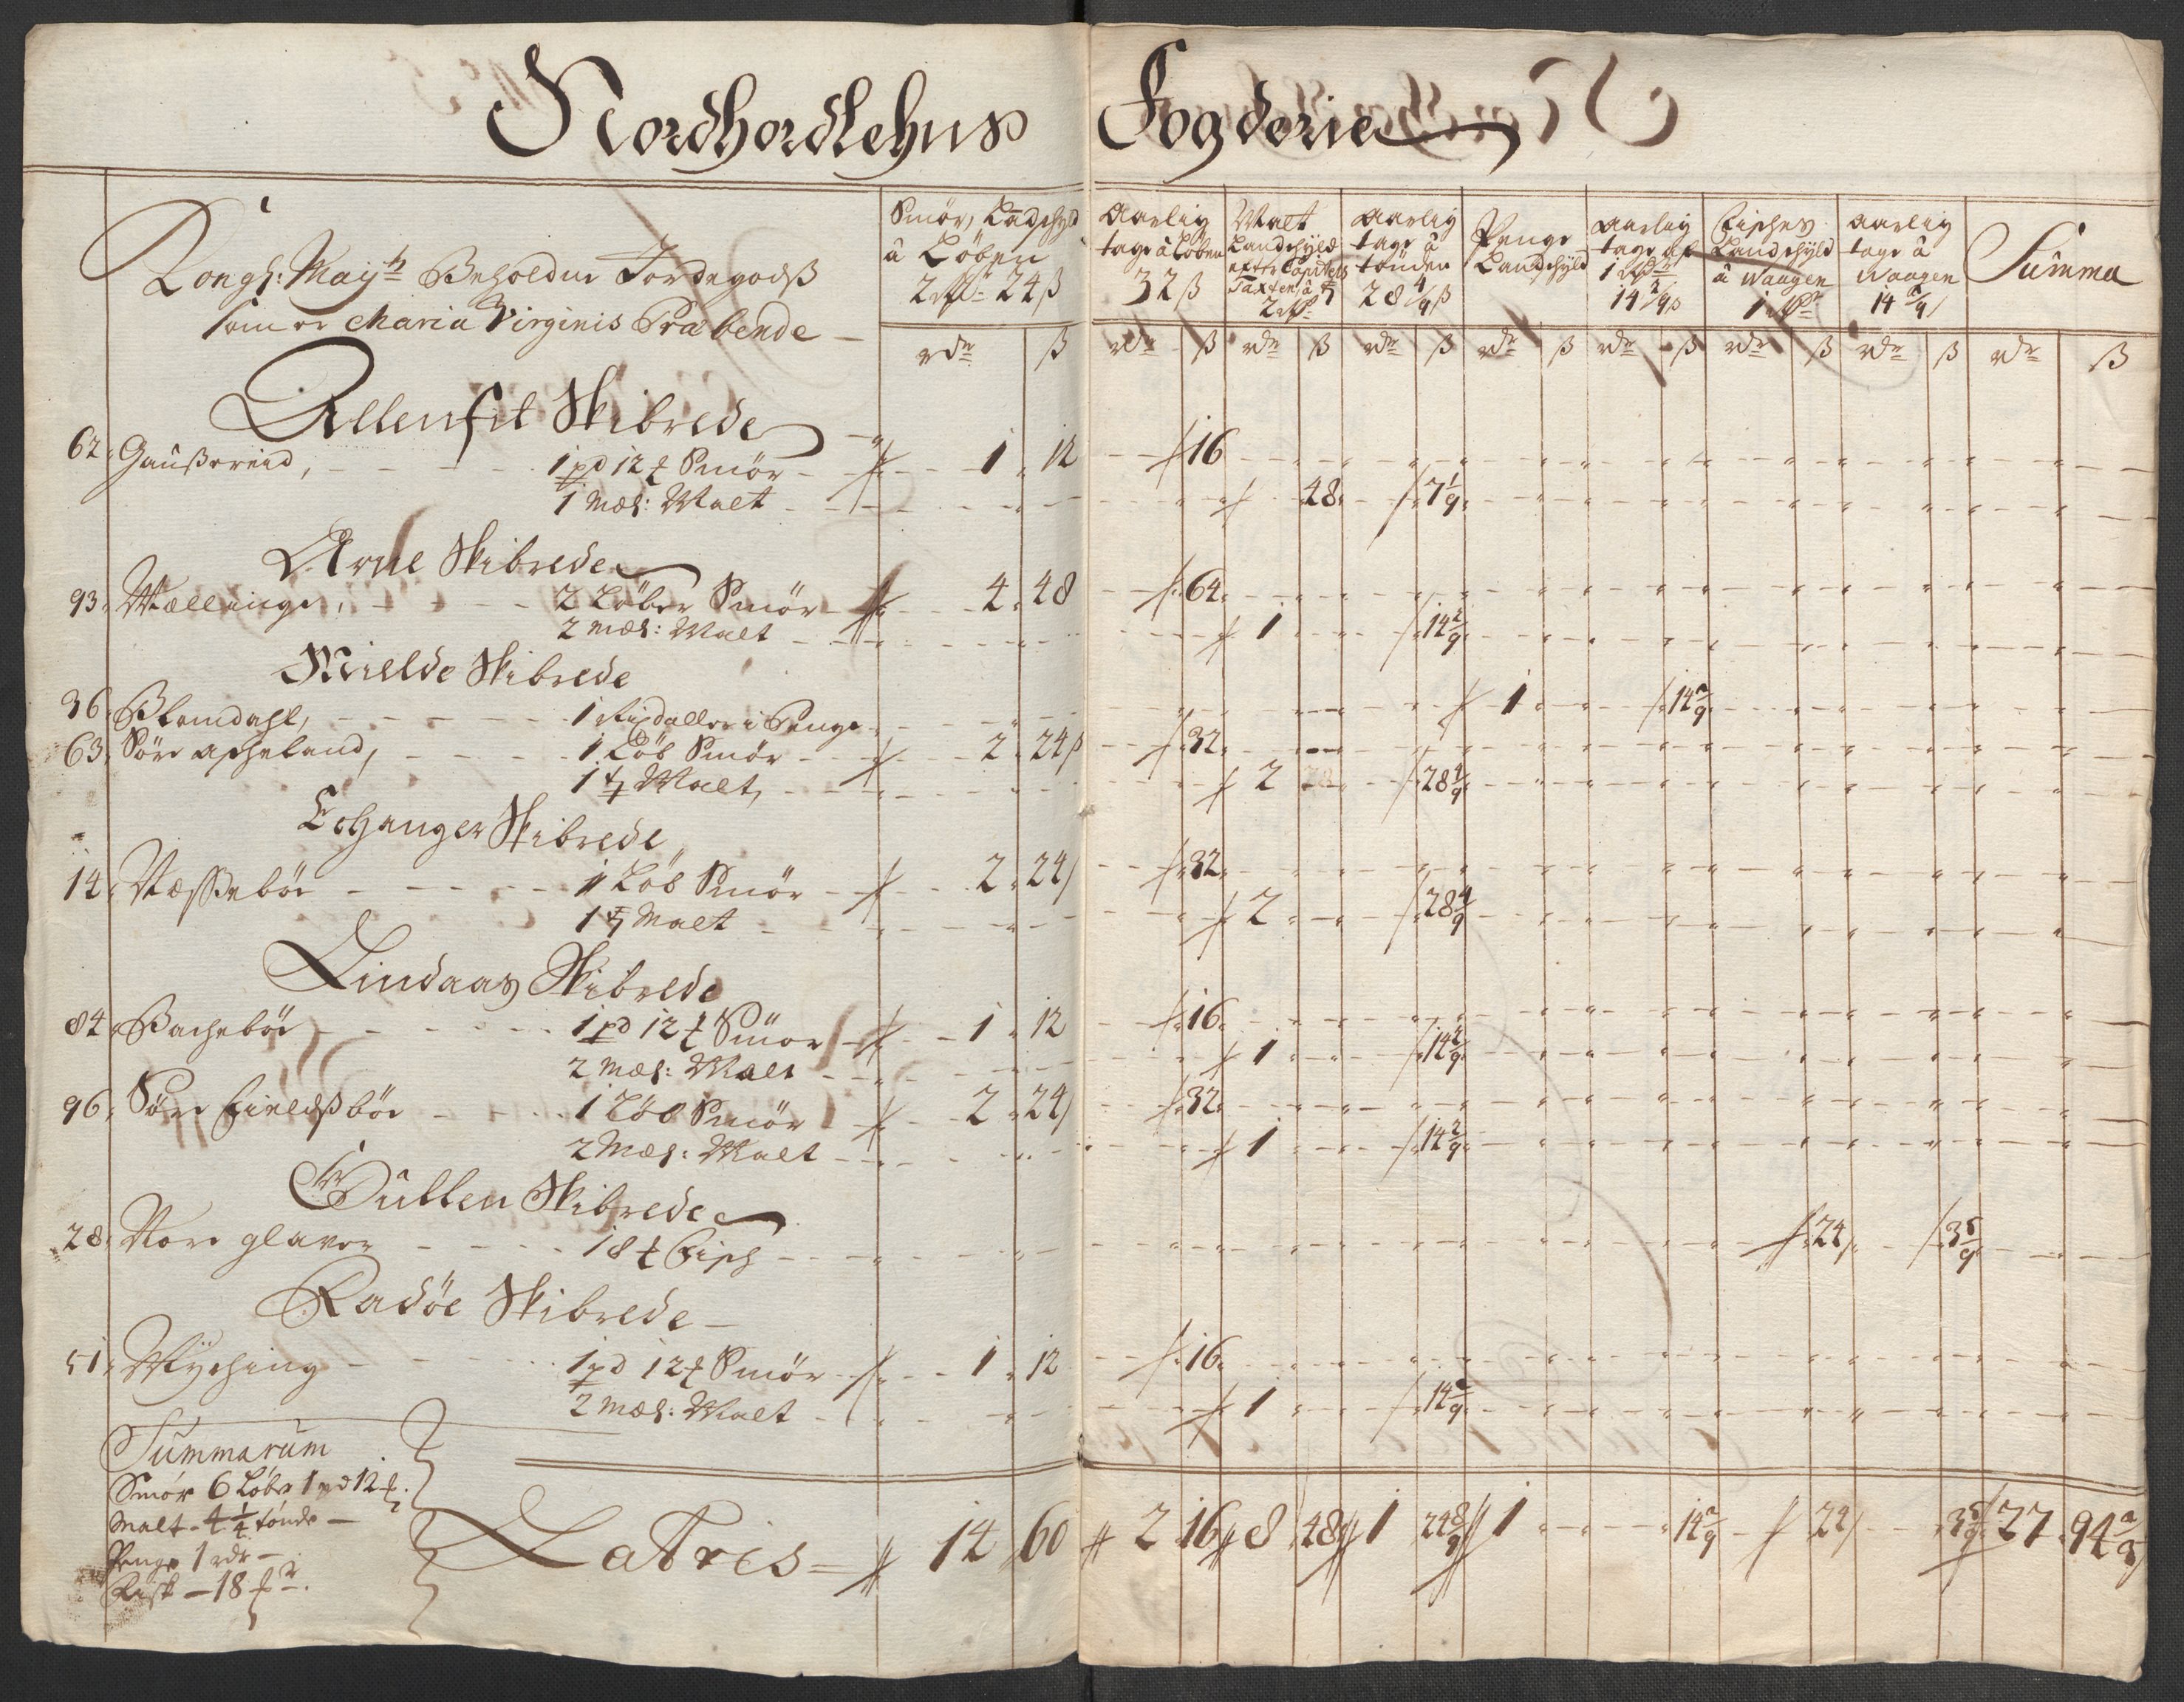 Nordhordlehns Fogderie
Kongl: Mayts Beholdne Jordegodß
som er Maria Virginis Præbende
Smör, Landschyld
â Löben
2 rdr 24 ß
Aarlig
tage â Löben
32 ß
Malt
Landschyld
efter Capitels
Taxten â
2 rdr
Aarlig
tage â
tönden
28 4/9 ß
Penge
Landschyld
Aarlig
tage af
1 rdr
14 2/9 ß
Fisches
Landschyld
â Waagen
1 rdr
Aarlig
tage â
Waagen
14 2/9
Summa
rdr ß rdr ß rdr ß rdr ß rdr ß rdr ß rdr ß rdr ß rdr ß
Allenfit Skibrede
62 Gaußereid, 1 pd 12 Smör 1 12 16
1 Mæl: Malt 48 7 1/9
Arne Skibrede
93 Mællinge, 2 Löber Smör 4 48 64
2 Mæl: Malt 1 14 2/9
Mielde Skibrede
36 Blomdahl, 1 Rixdaller i Penge 1 14 2/9
63 Söre Acheland, 1 Löb Smör 2 24 ß 32
1 t Malt, 2 28 4/9
Echanger Skibrede
14 Næsseböe 1 Löb Smör 2 24 32
1 t Malt 2 28 4/9
Lindaas Skibrede
84 Bacheböe 1 pd 12 Smör 1 12 16
2 Mæl: Malt 1 14 2/9
96 Söre Fieldßböe 1 Löb Smör 2 24 32
2 Mæl: Malt 1 14 2/9
Gullen Skibrede
28 Nore glaver 18 Fisch 24 3 5/9
Radöe Skibrede
51 Myching 1 pd 12 Smör 1 12 16
2 Mæl: Malt 1 14 2/9
Summarum
Smör 6 Löber 1 pd 12
Malt - 4 1/4 tönde
Penge 1 rdr
Fisk - 18
Lateris 14 60 2 16 8 48 1 24 8/9 1 14 2/9 24 3 5/9 27 94 2/3